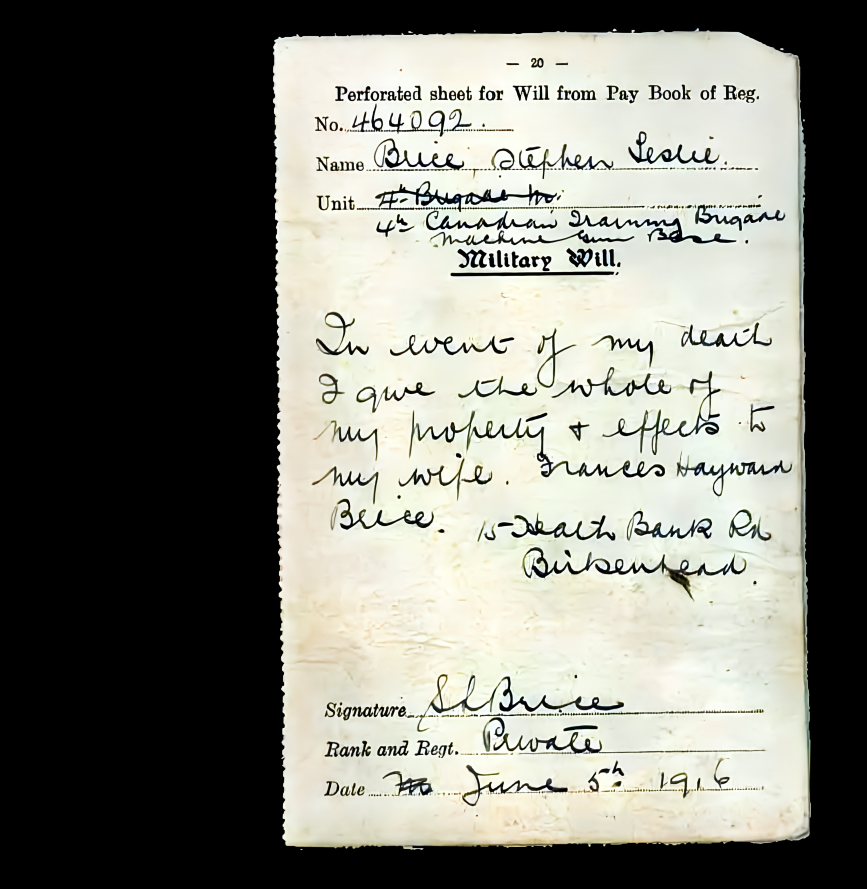 — 20 —
Perforated sheet for Will from Pay Book of Reg.
No. 464092.
Name Brice, Stephen Leslie.
Unit 4th Brigade M.
4th Canadian Training Brigade
Machine Gun Base.
Military Will.
In event of my death
I give the whole of
my property & effects to
my wife. Frances Hayward
Brice. 15 Heath Bank Rd
Birkenhead.
Signature S L Brice
Rank and Regt. Private
Date June 5th 1916